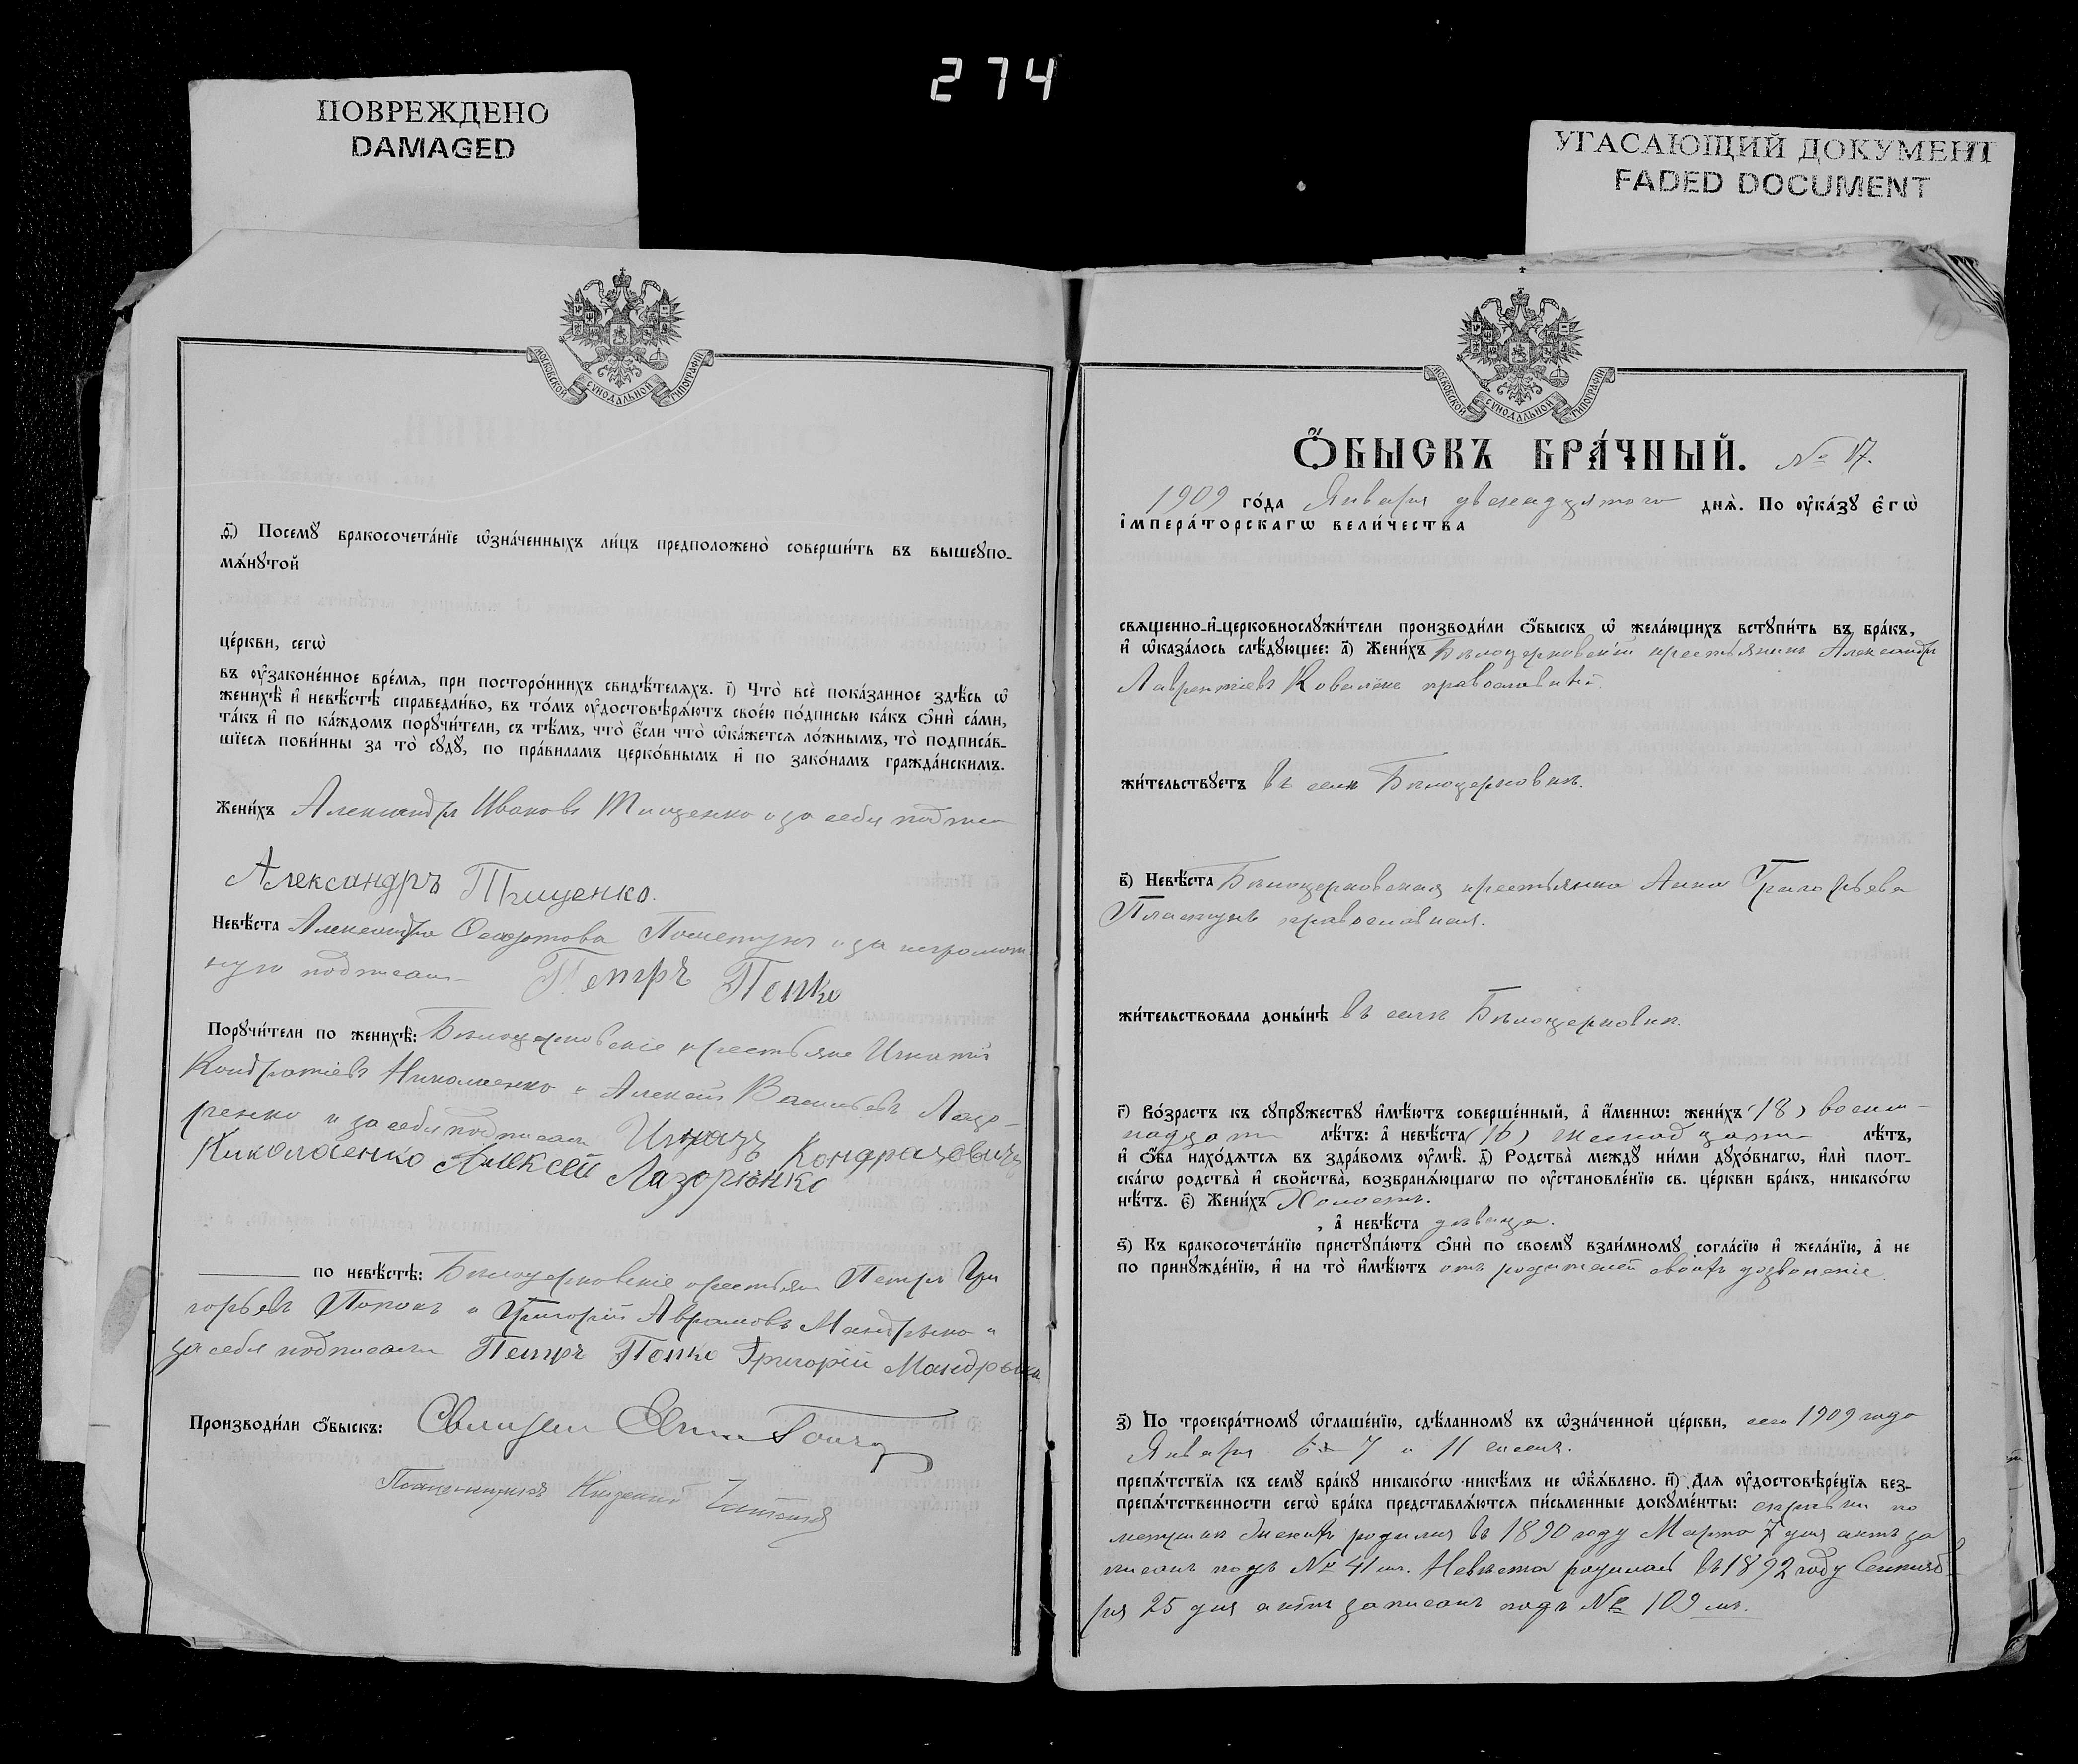 274
ПОВРЕЖДЕНО
DAMAGED
УГАСАЮЩИЙ ДОКУМЕНТ
FADED DOCUMENT
МОСКОВСКОЙ СѴНОДАЛЬНОЙ ТИПОГРАФІИ
д҃.) Посемꙋ бракосочета́нїе ѡ҆зна́ченныхъ ли́цъ предположено̀ соверши́ть въ вышеꙋпо-
мѧ́нꙋтой
це́ркви, сегѡ̀
въ ᲂу҆законе́нное вре́мѧ, при посторо́ннихъ свидѣ́телѧхъ. і҃) Что̀ всѐ пока́занное здѣ́сь ѡ҆
женихѣ̀ и҆ невѣ́стѣ справедли́во, въ то́мъ ᲂу҆достовѣрѧ́ютъ свое́ю по́дписью ка́къ ѻ҆нѝ са́ми,
та́къ и҆ по ка́ждомъ порꙋчи́тели, съ тѣ́мъ, что̀ є҆́сли что̀ ѡ҆ка́жетсѧ ло́жнымъ, то̀ подписа́в-
шїесѧ пови́нны за то̀ сꙋдꙋ̀, по пра́виламъ церко́внымъ и҆ по зако́намъ гражда́нскимъ.
Жени́хъ Александръ Ивановъ Тищенко и за себя подписа
Александръ Тищенко.
Невѣ́ста Александра и за неграмот
ную подписалъ Петръ Попко
Порꙋчи́тели по женихѣ̀: Бѣлоцерковскіе крестьяне Игнатій
Кондратіевъ Николаенко и Алексей Васильевъ Лазо-
ренко и за себя подписали Игнатъ Кондратовичъ
Николаенко Алексей Лазорѣнко
по невѣ́стѣ: Бѣлоцерковскіе крестьяне Петръ Гри
горьевъ Попокъ и Григорій Аврамовъ Мандрыко и
за себя подписали Петръ Попко Григорій Мандрыка
Производи́ли ѻ҆́быскъ: Священ
МОСКОВСКОЙ СѴНОДАЛЬНОЙ ТИПОГРАФІИ
Ѻ҆́БЫСКЪ БРА́ЧНЫЙ. № 17.
1909 го́да Января двенадцятого днѧ̀. По ᲂу҆ка́зꙋ є҆гѡ̀
і҆мпера́торскагѡ вели́чества
свѧщенно-и҆-церковнослꙋжи́тели производи́ли ѻ҆́быскъ ѡ҆ жела́ющихъ встꙋпи́ть въ бра́къ,
и҆ ѡ҆каза́лось слѣ́дꙋющее: а҃) Жени́хъ Бѣлоцерковскій крестьянинъ Александръ
Лаврентіевъ Коваленко православный.
жи́тельствꙋетъ въ селѣ Бѣлоцерковкѣ.
в҃) Невѣ́ста Бѣлоцерковская крестьянка Анна Григорьева
Пластунъ православная.
жи́тельствовала доны́нѣ въ селѣ Бѣлоцерковкѣ.
г҃) Во́зрастъ къ сꙋпрꙋжествꙋ и҆мѣ́ютъ соверше́нный, а҆ и҆́менно: жени́хъ (18) восем-
надцать лѣ́тъ: а҆ невѣ́ста (16) шестнадцать лѣ́тъ,
и҆ ѻ҆́ба нахо́дѧтсѧ въ здра́вомъ ᲂу҆мѣ̀. д҃) Родства̀ междꙋ̀ ни́ми дꙋхо́внагѡ, и҆лѝ плот-
ска́гѡ родства̀ и҆ сво́йства̀, возбранѧ́ющагѡ по ᲂу҆становле́нїю св. це́ркви бра́къ, никако́гѡ
нѣ́тъ. є҃) Жени́хъ Холостъ.
, а҆ невѣ́ста дѣвица.
ѕ҃) Къ бракосочета́нїю пристꙋпа́ютъ ѻ҆нѝ по своемꙋ̀ взаи́мномꙋ согла́сїю и҆ жела́нїю, а҆ не
по принꙋжде́нїю, и҆ на то̀ и҆мѣ́ютъ отъ родителей своихъ дозволеніе.
з҃) По троекра́тномꙋ ѡ҆глаше́нїю, сдѣ́ланномꙋ въ ѡ҆зна́ченной це́ркви, сего 1909 года
Января 6 7 и 11 числа.
препѧ́тствїѧ къ семꙋ̀ бра́кꙋ никако́гѡ никѣ́мъ не ѡ҆б̾ѧ́влено. и҃) Для ᲂу҆достовѣре́нїѧ без-
препѧ́тственности сегѡ̀ бра́ка представлѧ́ютсѧ пи́сьменные докꙋме́нты: справки по
метрикѣ Женихъ родился въ 1890 году Марта 7 дня актъ за
писанъ подъ № 41 мъ. Невѣста родилась въ 1892 году Сентяб-
ря 25 дня актъ записанъ подъ № 109 мъ.